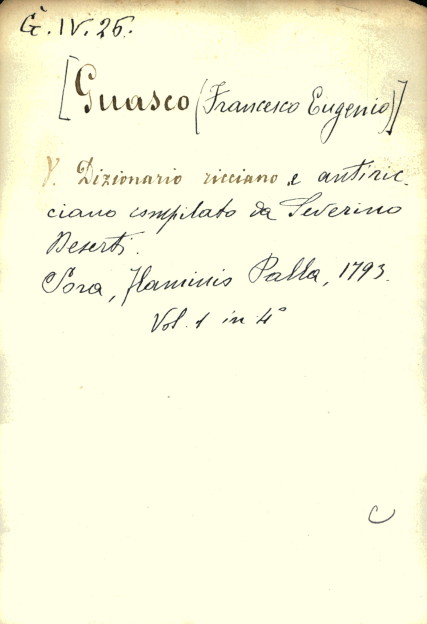 G. IV. 25.
[Guasco (Francesco Eugenio)]
V. Dizionario ricciano e antiric-
ciano compilato da Severino
Deserti.
Sora, Flaminio Palla, 1793.
Vol. 1 in 4°
C